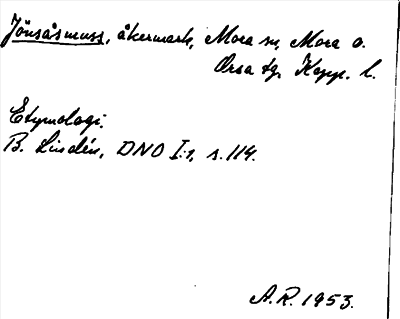 Jönsåsmuss, åkermark, Mora sn, Mora o.
Orsa tg. Kopp. l.
Etymologi.
B. Lindén, DNO I:1, s. 114.
A.R. 1953.